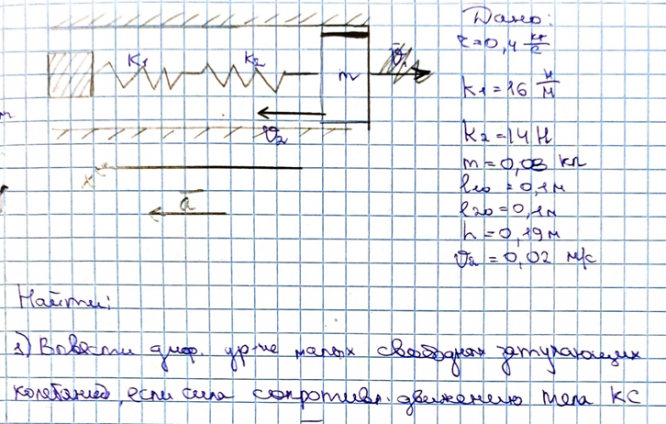 Дано:
r=0,4 кг/с
K1 K2 m
K1=16 Н/м
K2=14 Н
ϑ2
m=0,03 кг
l10=0,1м
l20=0,1м
ā
h=0,19м
ϑ2=0,02 м/с
Найти:
1) Вывести диф. ур-ие малых свободных затухающих
колебаний, если сила сопротивл. движению тела КС